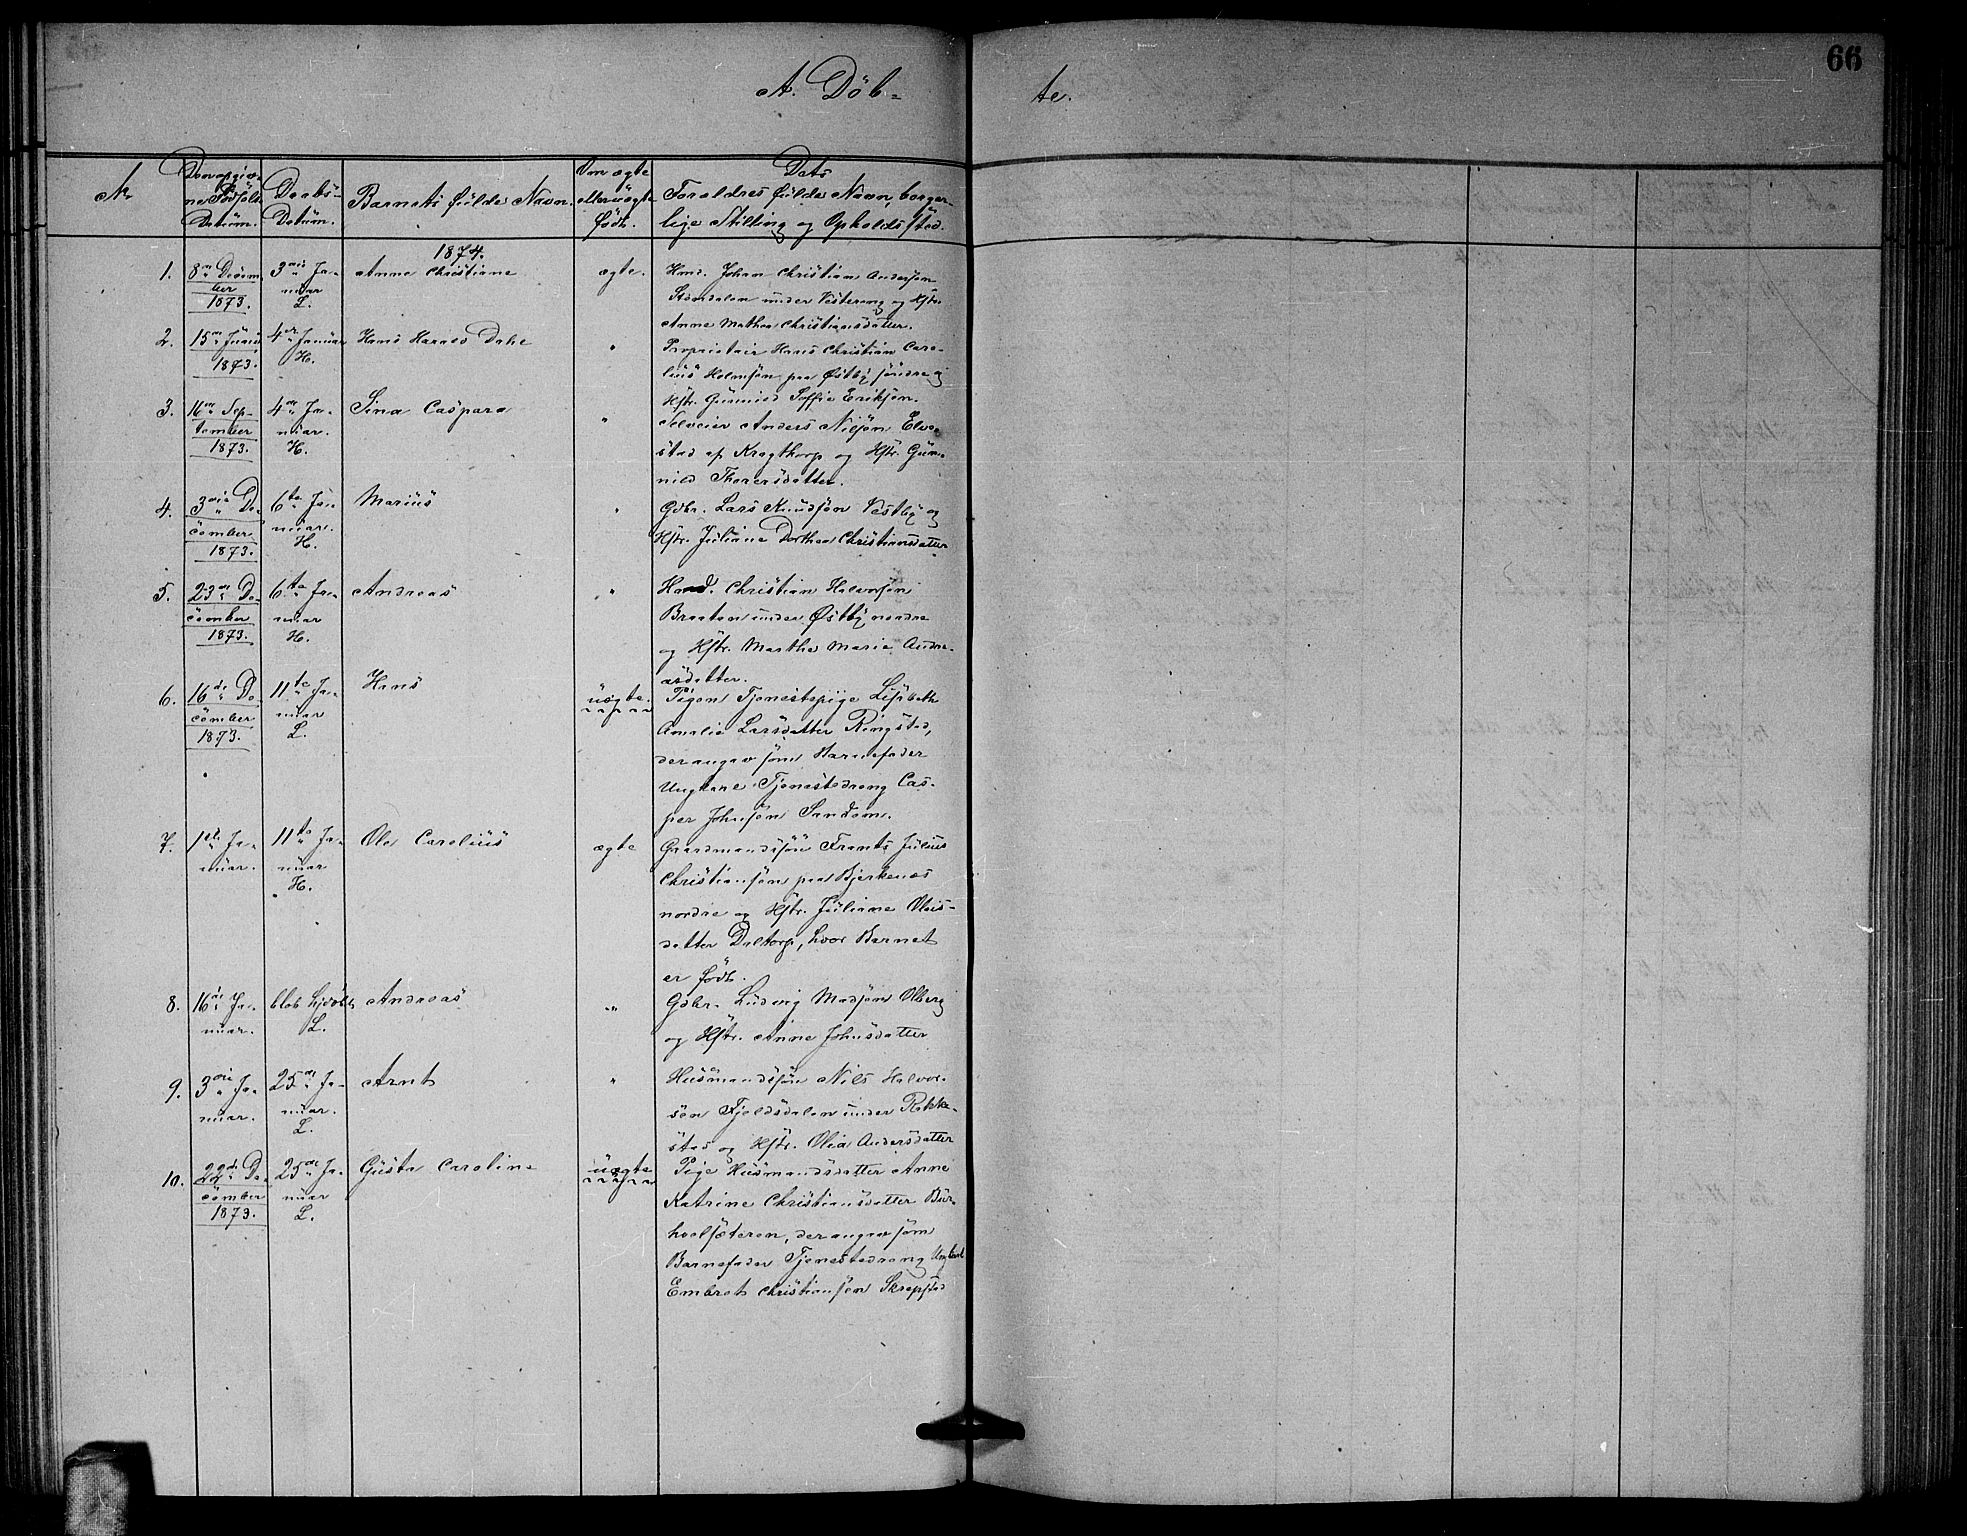 66
A. Döb-
te.
№
Den opgiv-
ne Födsels
Datum.
Daabs-
Datum.
Barnets fulde Navn.
Om ægte
eller uægte
født.
Dets
Foraldres fulde Navn, borger-
lige Stilling og Opholdsted.
1874.
1.
8de Decem-
ber
1873.
3die Ja-
nuar
L.
Anne Christiane
ægte.
Hmd. Johan Christian Andersøn
under Vestereng og Hstr.
Anne Mathea Christiansdatter.
2.
15de Junii
1873.
4de Januar
H.
Hans Harald Dahl
"
Proprietair Hans Christian Caro-
lius Holmsøn paa Østby søndre og
Hstr. Gunnild Soffie Eriksøn.
3.
16de Sep-
tember
1873.
4de Ja-
nuar.
H.
Sina Caspara
"
Selveier Anders Nilsøn Elve-
stad af Kragthorp og Hstr. Gun-
nild Thorersdatter.
4.
3die De-
cember
1873.
6te Ja-
nuar.
H.
Marius
"
Gdbr. Lars Knudsøn Vestby og
Hstr. Juliane Dorthea Christiansdatter
5.
23de De-
cember
1873.
6te Ja-
nuar
H.
Andreas
"
Hmd. Christian Halvorsøn
Braaten under Østby nordre
og Hstr. Marthe Marie Andre-
asdatter.
6.
16de De-
cember
1873.
11te Ja-
nuar
L.
Hans
uægte.
Pigen Tjenestepige Lisbeth
Amalie Larsdatter Ringstad,
der angav som Barnefader
Ungkarl Tjenestedreng Cas-
per Johnsøn Sandem.
7.
1ste Ja-
nuar.
11te Ja-
nuar
H.
Ole Carolius
ægte
Gaardmandssøn Frants Julius
Christiansøn paa Bjerkenæs
nordre og Hstr. Juliane Oleis-
datter Daltorp, hvor Barnet
er født.
8.
16de Ja-
nuar.
blot hjdøbt
L.
Andreas
"
Gdbr. Ludvig Madsøn Olberg
og Hstr. Anne Johnsdatter
9.
3die Ja-
nuar.
25de Ja-
nuar.
L.
Arnt
"
Husmandssøn Nils Halvor-
søn Fjeldsdalen under Rakke-
stad og Hstr. Olea Andersdatter
10.
22de De-
cember
1873.
25de Ja-
nuar
L.
Gusta Caroline
uægte
Pige Husmandsdatter Anne
Katrine Christiansdatter Bur-
holsæteren, der angav som
Barnefader Tjenestedreng Ungkarl
Embret Christiansøn Skrepstad